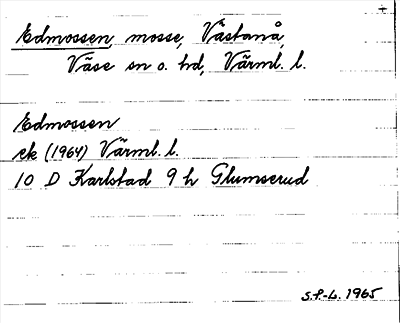 +
Edmossen, mosse, Västanå,
Väse sn o. hd, Värml. l.
Edmossen
ek (1964) Värml. l.
10 D Karlstad 9 h Glumserud
S.P.-L. 1965